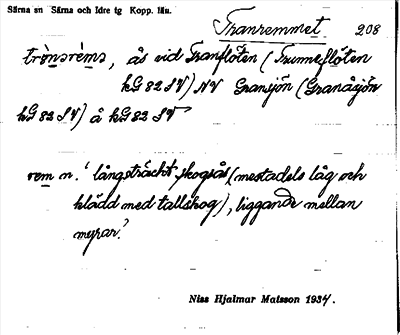 Särna sn Särna och Idre tg Kopp. län.
Tranremmet 208
trònsrèms, ås vid Tranflöten (Trunneflöten
kG 82 SV) NV Gransjön (Granåsjön
kG 82 SV) å kG 82 SV
rem n. 'långsträckt skogsås (mestadels låg och
klädd med tallskog), liggande mellan
myrar.'
Niss Hjalmar Matsson 1934.